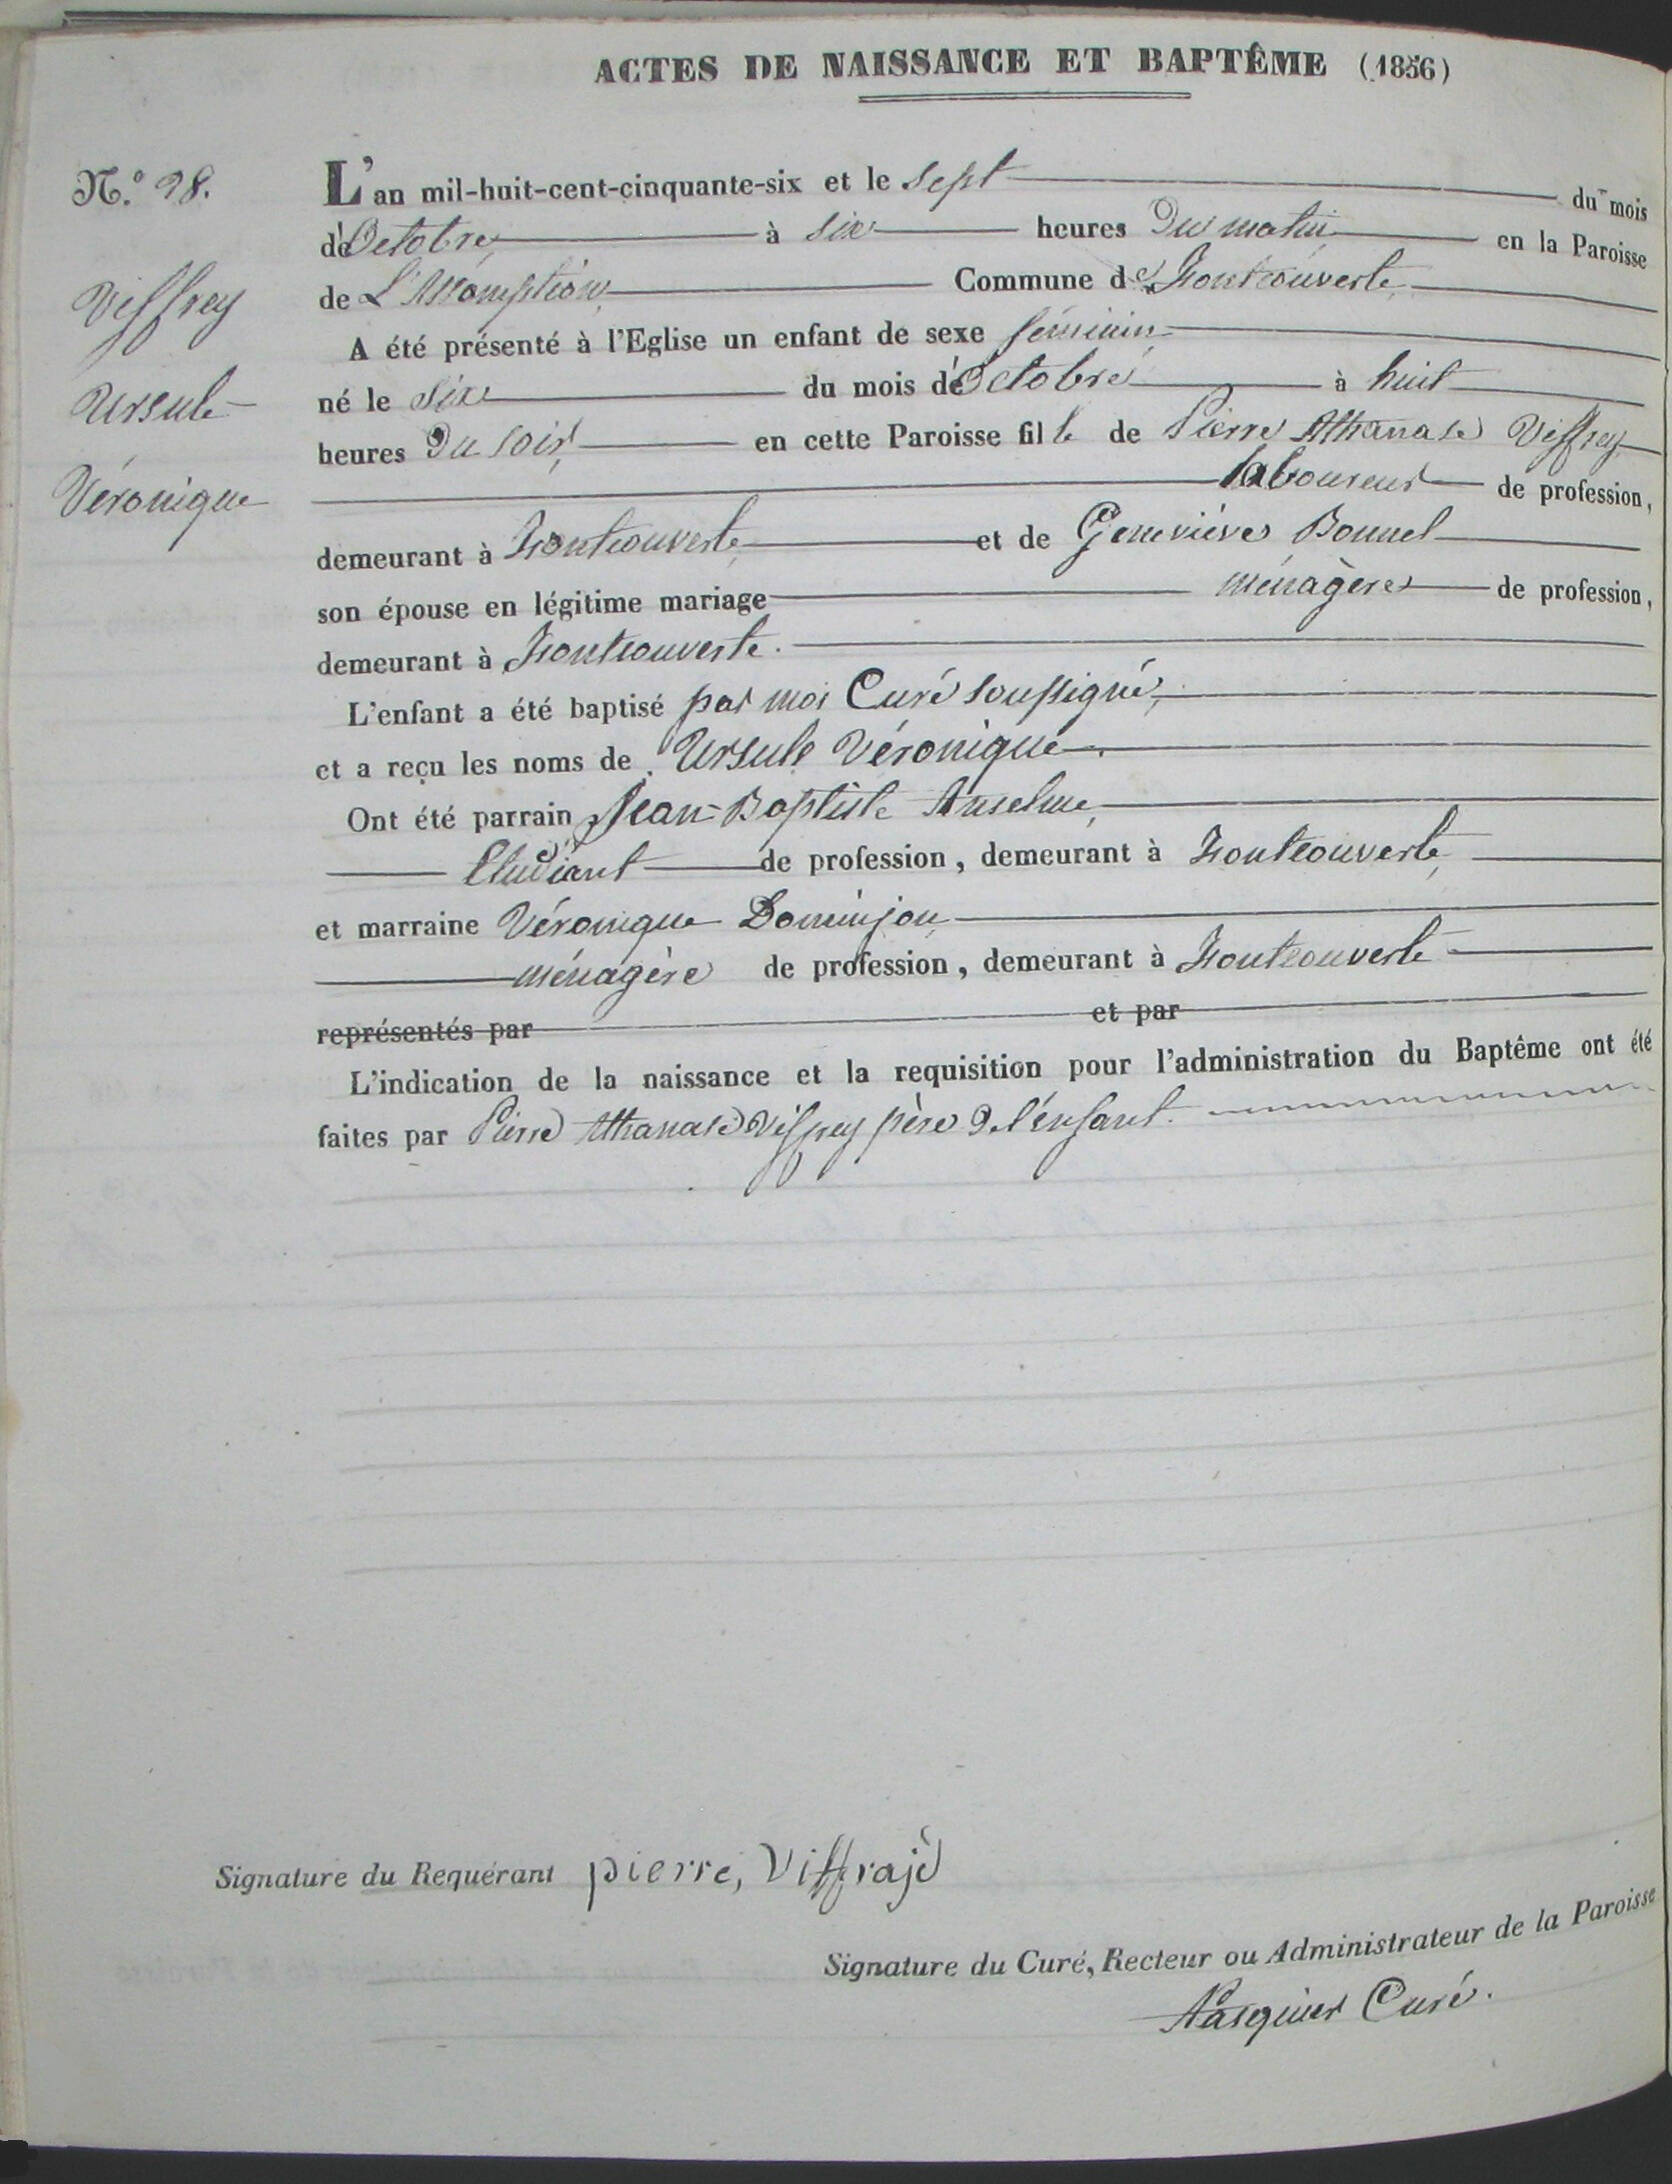 ACTES DE NAISSANCE ET BAPTÊME (1856)
N.° 28.
L'an mil-huit-cent-cinquante-six et le sept du mois
d'Octobre, à six heures du matin en la Paroisse
de L'Assomption, Commune de Fontcouverte,
A été présenté à l'Eglise un enfant de sexe féminin
né le six du mois d'Octobre à huit
heures du soir, en cette Paroisse fille de Pierre Athanase Viffrey
laboureur de profession,
demeurant à Fontcouverte, et de Geneviève Bonnel
son épouse en légitime mariage ménagère de profession,
demeurant à Fontcouverte.
L'enfant a été baptisé par moi Curé soussigné,
et a reçu les noms de Ursule Véronique.
Ont été parrain Jean-Baptiste Anselme,
Etudiant de profession, demeurant à Fontcouverte,
et marraine Véronique Dominjon
ménagère de profession, demeurant à Fontcouverte
représentés par et par
L'indication de la naissance et la requisition pour l'administration du Baptême ont été
faites par Pierre Athanase Viffrey père de l'enfant.
Viffrey
Ursule
Véronique
Signature du Requérant pierre, Viffrajè
Signature du Curé, Recteur ou Administrateur de la Paroisse
Pasquier Curé.